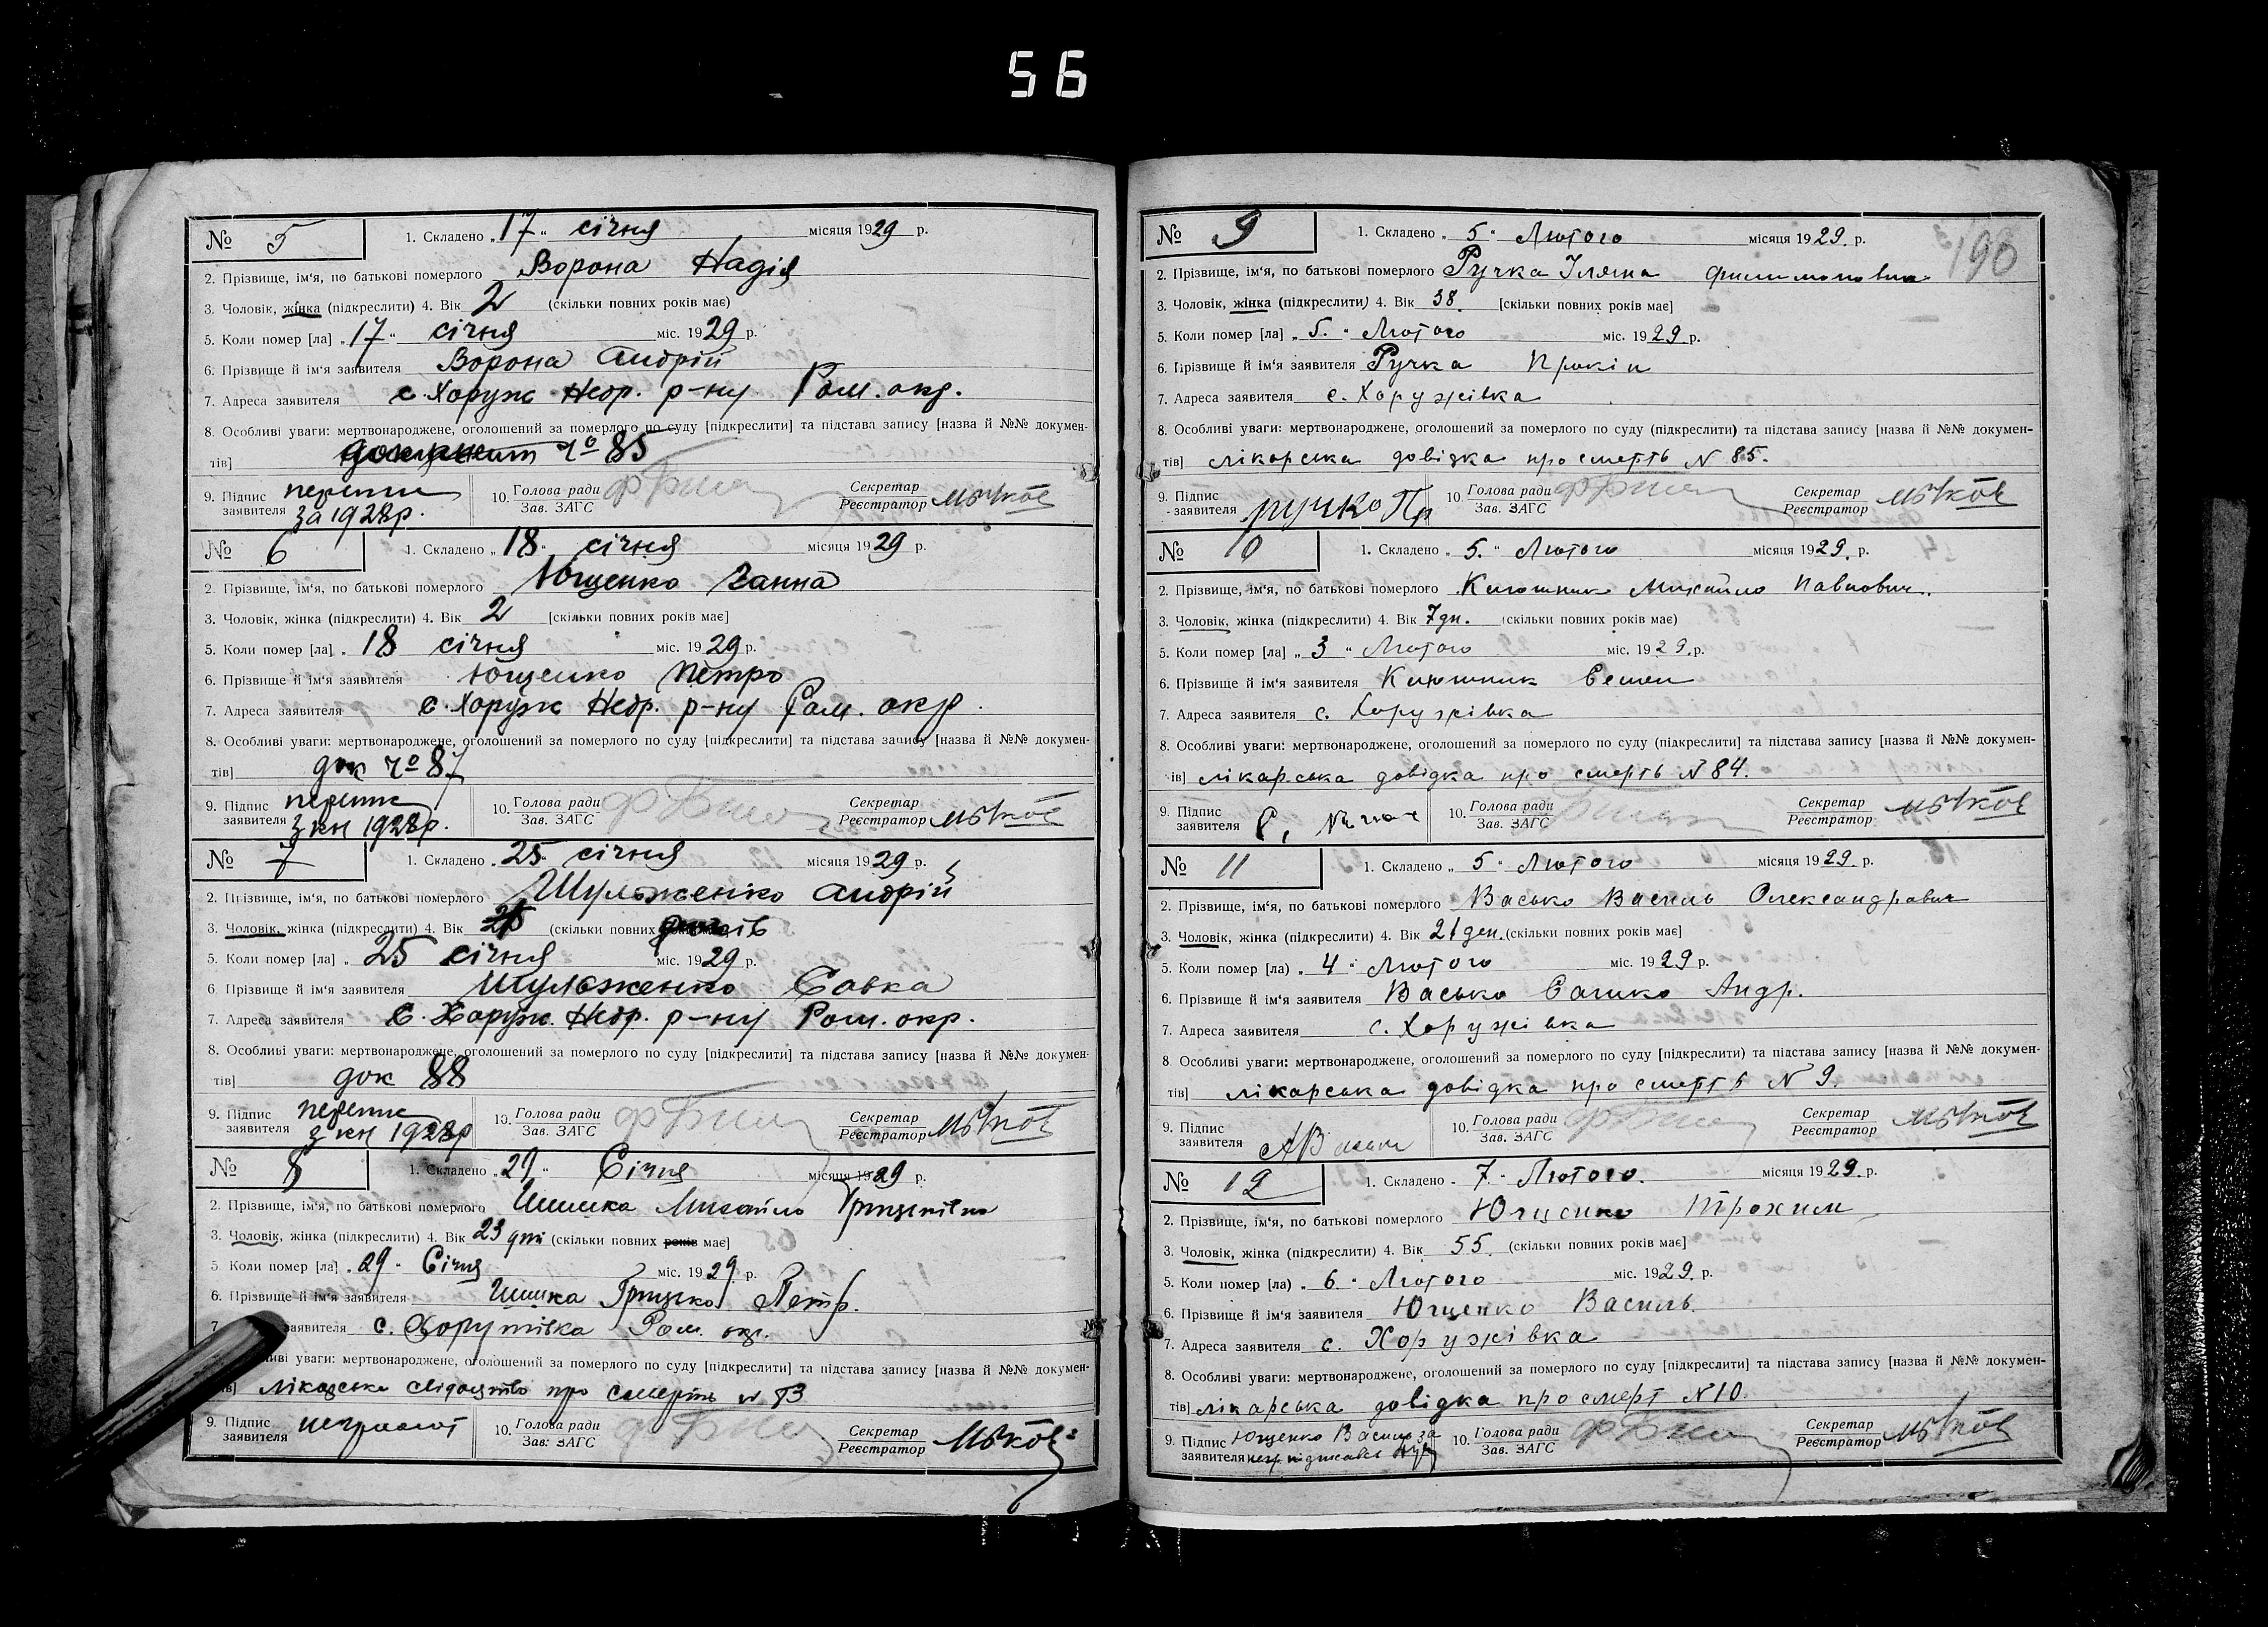 56
№ 5 1. Складено „17“ січня місяця 1929 р.
2. Прізвище, ім‘я, по батькові померлого Ворона Надія
3. Чоловік, жінка (підкреслити) 4. Вік 2 (скільки повних років має)
5. Коли помер [ла] „17“ січня міс. 1929 р.
6. Прізвище й ім‘я заявителя Ворона Андрій
7. Адреса заявителя с. Хоруж Недр. р-ну Ром. окр.
8. Особливі уваги: мертвонароджене, оголошений за померлого по суду [підкреслити] та підстава запису [назва й №№ докумен-
тів] документ 85
9. Підпис заявителя за 1928 р. 10. Голова ради Зав. ЗАГС Секретар Реєстратор
№ 6 1. Складено „18“ січня місяця 1929 р.
2. Прізвище, ім‘я, по батькові померлого Ющенко Ганна
3. Чоловік, жінка (підкреслити) 4. Вік 2 [скільки повних років має]
5. Коли помер [ла] „18 січня міс. 1929 р.
6. Прізвище й ім‘я заявителя Ющенко Петро
7. Адреса заявителя с. Хоруж Недр. р-ну Ром. окр.
8. Особливі уваги: мертвонароджене, оголошений за померлого по суду [підкреслити] та підстава запису [назва й №№ докумен-
тів] док 87
9. Підпис заявителя з кн 1928р. 10. Голова ради Зав. ЗАГС Секретар Реєстратор
№ 7 1. Складено „25“ січня місяця 1929 р.
2. Прізвище, ім‘я, по батькові померлого Шульженко Андрій
3. Чоловік, жінка (підкреслити) 4. Вік (скільки повних
5. Коли помер [ла] „25 січня міс. 1929 р.
6. Прізвище й ім‘я заявителя Шульженко Савка
7. Адреса заявителя с. Хоруж. Недр. р-ну Ром. окр.
8. Особливі уваги: мертвонароджене, оголошений за померлого по суду [підкреслити] та підстава запису [назва й №№ докумен-
тів] док 88
9. Підпис заявителя з кн 1928р 10. Голова ради Зав. ЗАГС Секретар Реєстратор
№ 8 1. Складено „29“ Січня місяця 1929 р.
2. Прізвище, ім‘я, по батькові померлого Шишка Михайло
3. Чоловік, жінка (підкреслити) 4. Вік 23 дні (скільки повних років має]
5. Коли помер [ла] „29“ Січня міс. 1929 р.
6. Прізвище й ім‘я заявителя Шишка Грицько Петр.
7. заявителя с. Хоружівка Ром. окр.
уваги: мертвонароджене, оголошений за померлого по суду [підкреслити] та підстава запису [назва й №№ докумен-
тів] лікарське свідоцтво про смерть
9. Підпис заявителя неграмот 10. Голова ради Зав. ЗАГС Секретар Реєстратор
190
№ 9 1. Складено „5“ Лютого місяця 1929. р.
2. Прізвище, ім‘я, по батькові померлого Ручка Уляна
3. Чоловік, жінка (підкреслити) 4. Вік 38. [скільки повних років має]
5. Коли помер [ла] „5.“ Лютого міс. 1929 р.
6. Прізвище й ім‘я заявителя Ручка Прокіп
7. Адреса заявителя с. Хоружівка
8. Особливі уваги: мертвонароджене, оголошений за померлого по суду (підкреслити) та підстава запису [назва й №№ докумен-
тів] лікарська довідка про смерть N 85.
9. Підпис заявителя ручко Пр 10. Голова ради Зав. ЗАГС Секретар Реєстратор
№ 10 1. Складено „5.“ Лютого місяця 1929. р.
2. Прізвище, ім‘я, по батькові померлого Ключник Михайло Павлович.
3. Чоловік, жінка (підкреслити) 4. Вік 7 дн. (скільки повних років має)
5. Коли помер [ла] „3“ Лютого міс. 1929. р.
6. Прізвище й ім‘я заявителя Ключник Семен
7. Адреса заявителя с. Хоружівка
8. Особливі уваги: мертвонароджене, оголошений за померлого по суду (підкреслити] та підстава запису [назва й №№ докумен-
ів] лікарська довідка про смерть N 84.
9. Підпис заявителя 10. Голова ради Зав. ЗАГС Секретар Реєстратор
№ 11 1. Складено „5“ Лютого місяця 1929. р.
2. Прізвище, ім‘я, по батькові померлого Васько Василь Олександрович
3. Чоловік, жінка (підкреслити) 4. Вік 21 ден. (скільки повних років має]
5. Коли помер [ла) „4“ Лютого міс. 1929 р.
6. Прізвище й ім‘я заявителя Васько Сашко Андр.
7. Адреса заявителя с. Хоружівка
8. Особливі уваги: мертвонароджене, оголошений за померлого по суду [підкреслити) та підстава запису [назва й №№ докумен-
тів] лікарська довідка про смерть N 9.
9. Підпис заявителя 10. Голова ради Зав. ЗАГС Секретар Реєстратор
№ 12 1. Складено „7“ Лютого. місяця 1929. р.
2. Прізвище, ім‘я, по батькові померлого Ющенко Трохим
3. Чоловік, жінка (підкреслити) 4. Вік 55. (скільки повних років має]
5. Коли помер [ла) „6“ Лютого міс. 1929. р.
6. Прізвище й ім‘я заявителя Ющенко Василь.
7. Адреса заявителя с. Хоружівка
8. Особливі уваги: мертвонароджене, оголошений за померлого по суду [підкреслити] та підстава запису [назва й №№ докумен-
тів] лікарська довідка про смерт N 10.
9. Підпис заявителя Ющенко Василь за 10. Голова ради Зав. ЗАГС Секретар Реєстратор